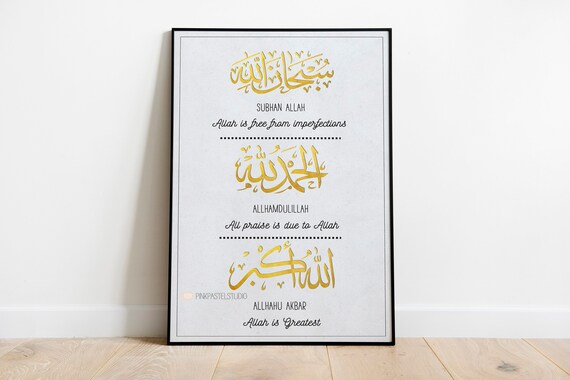 سُبْحَانَ اللّٰه
SUBHAN ALLAH
Allah is free from imperfections
الحَمْدُ لِلّٰه
ALLHAMDULILLAH
All praise is due to Allah
اللهُ أَكْبَر
PINKPASTELSTUDIO
ALLHAHU AKBAR
Allah is Greatest